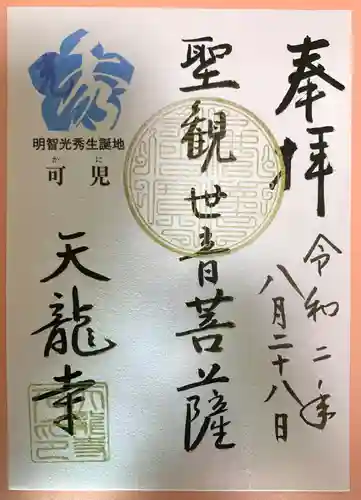 奉拝
令和二年
八月二十八日
聖観世音菩薩
明智光秀生誕地
かに
可児
天龍寺